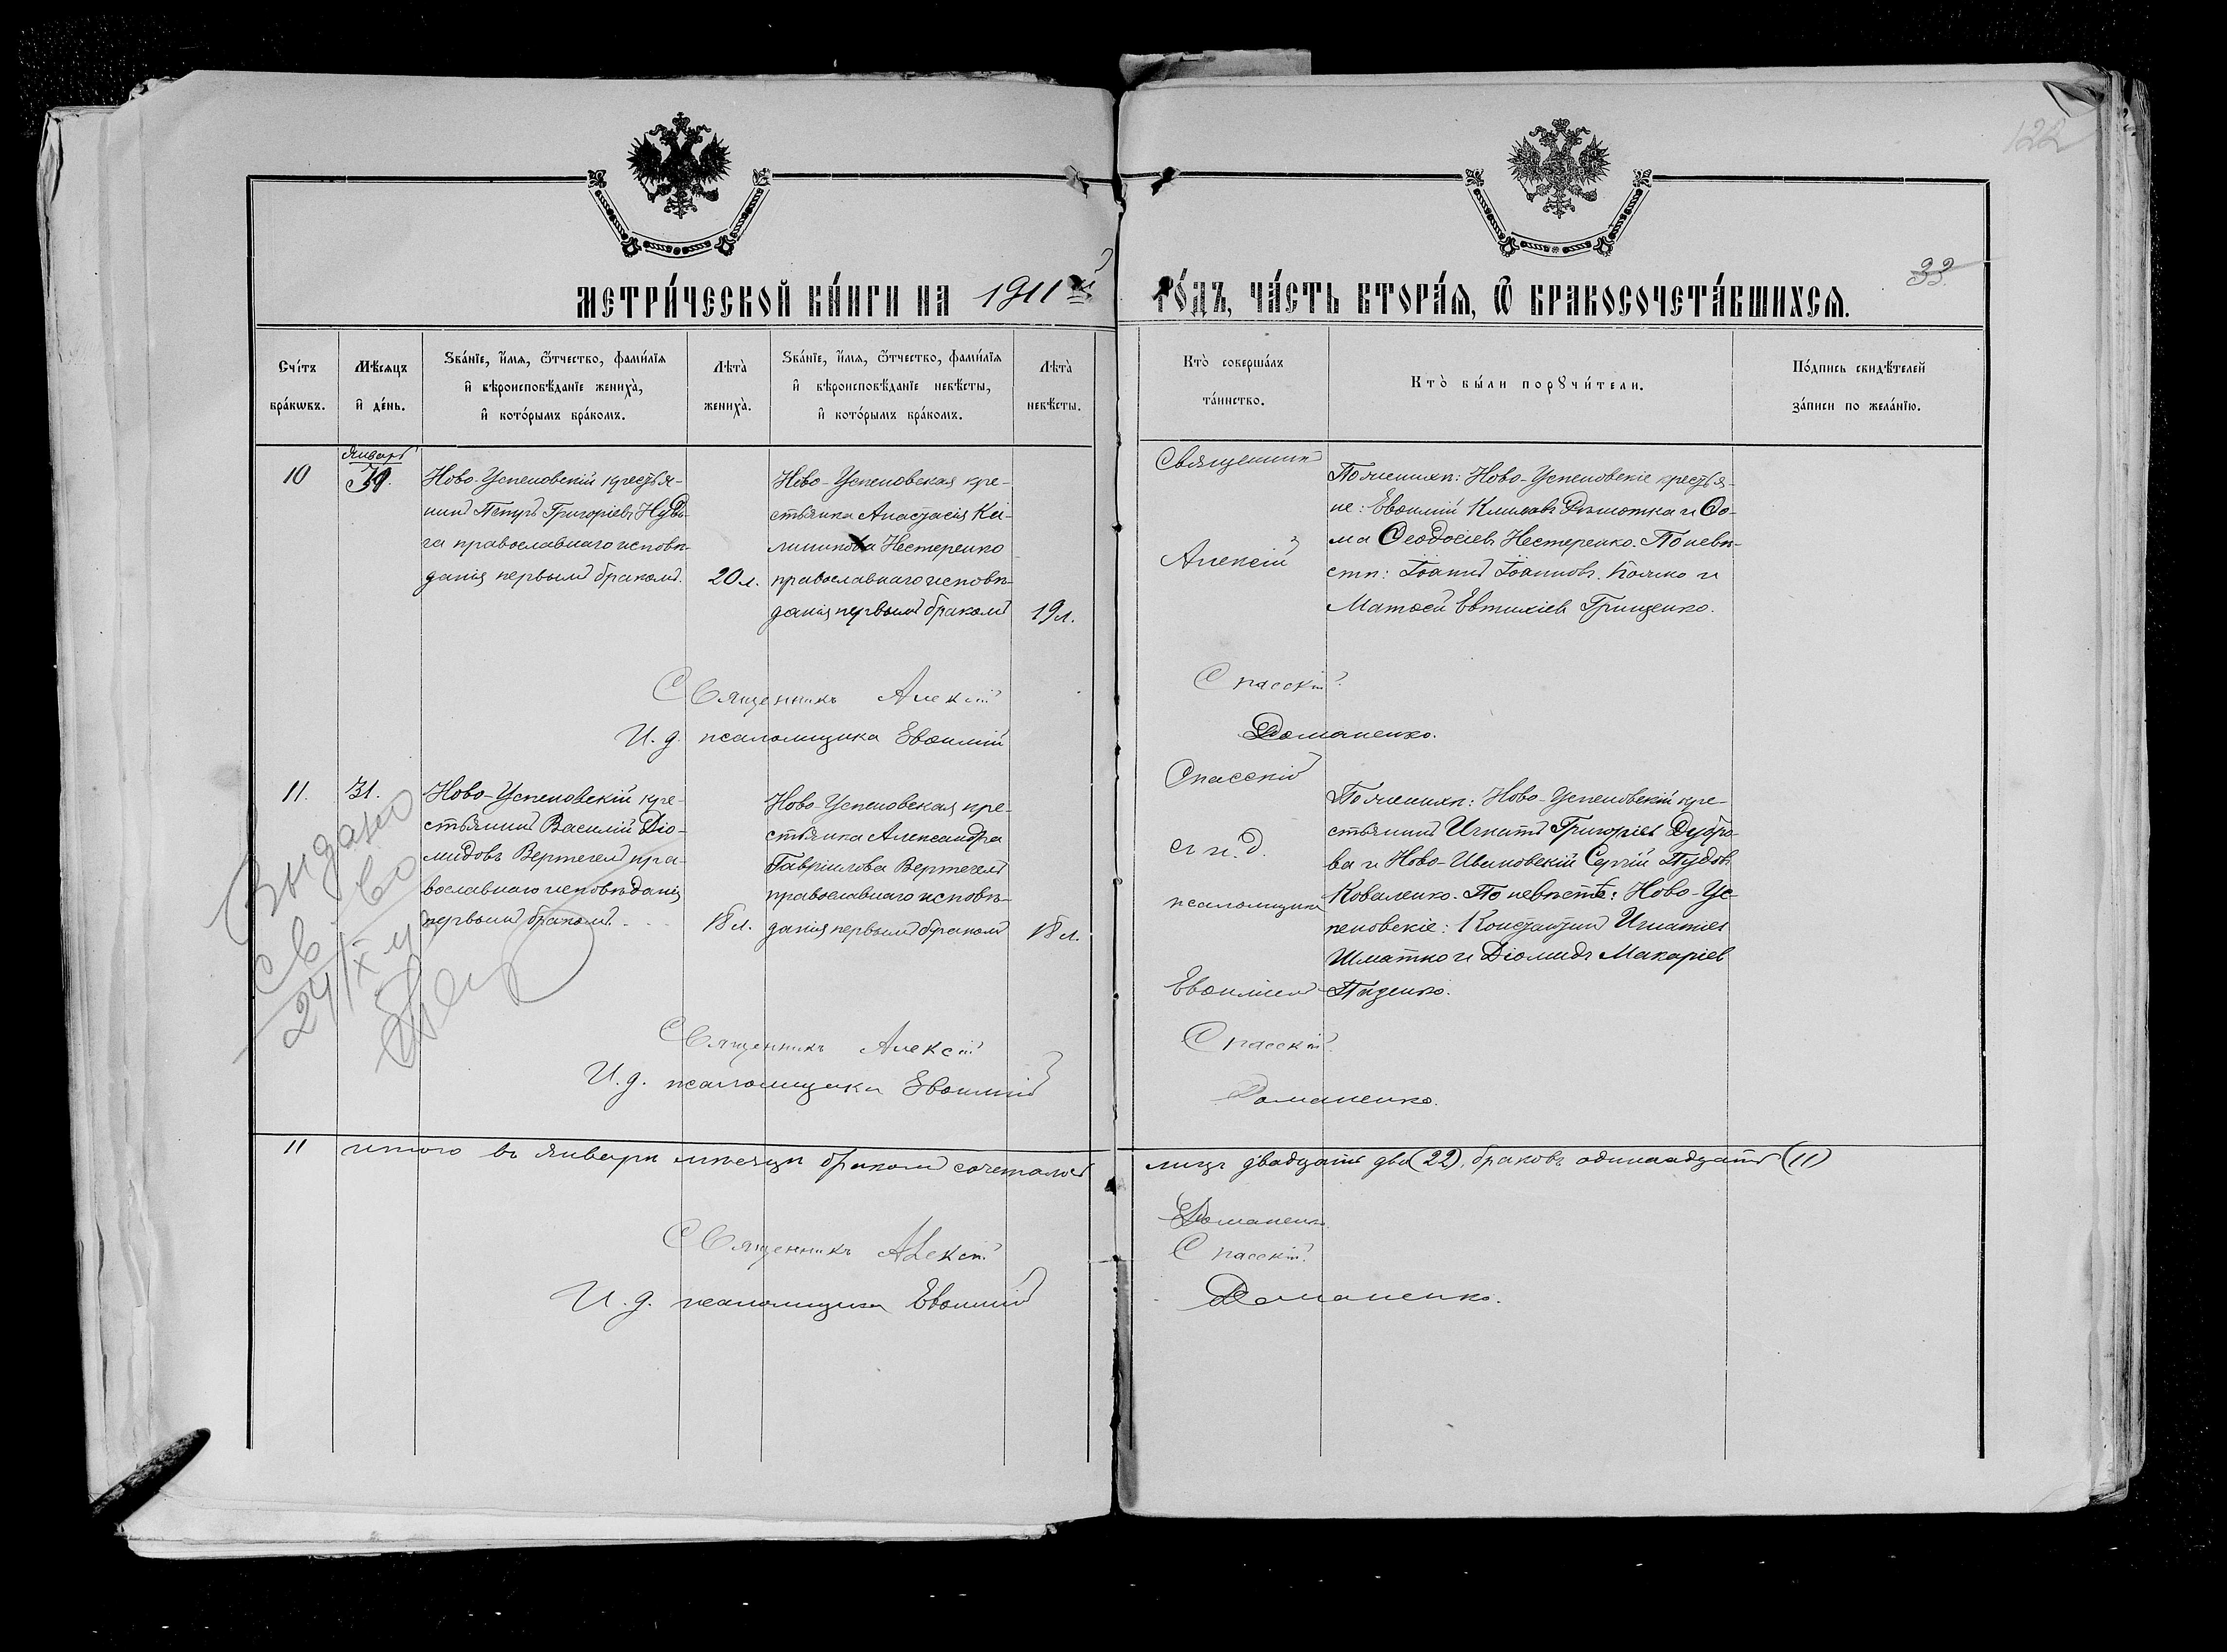 122
33.
МЕТРИ́ЧЕСКОЙ КНИ́ГИ НА 1911 й
ГО́ДЪ, ЧА́СТЬ ВТОРА́Я, Ѿ БРАКОСОЧЕТА́ВШИХСЯ.
Сче́тъ бра́кѡвъ.
Мѣ́сяцъ и҆ де́нь.
Ѕва́нїе, и҆́мя, ѻ҆́тчество, фами́лїя
и҆ вѣроисповѣ́данїе жениха̀,
и҆ кото́рымъ бра́комъ.
Лѣта̀ жениха̀.
Ѕва́нїе, и҆́мя, ѻ҆́тчество, фами́лїя
и҆ вѣроисповѣ́данїе невѣ́сты,
и҆ кото́рымъ бра́комъ.
Лѣта̀ невѣ́сты.
Кто̀ соверша́лъ
та́инство.
Кто̀ бы́ли порꙋчи́тели.
По́дпись свидѣ́телей
за́писи по жела́нїю.
10
Январь
Ново-Успеновскій крестья-
нинъ Петръ Григоріевъ
православнаго исповѣ-
данія первымъ бракомъ.
20 л.
Ново-Успеновская кре-
стьянка Анастасія Ка-
линикова Нестеренко
православнаго исповѣ-
данія первымъ бракомъ
19 л.
Священникъ
Алексій
Спасскій
и и. д.
псаломщика
Евѳимій
По женихѣ: Ново-Успеновскіе крестья-
не: Евѳимій Климовъ и Ѳо-
ма Ѳеодосіевъ Нестеренко. По невѣ-
стѣ: Іоаннъ Іоанновъ Кошко и
Матѳей Евтихіевъ Грищенко.
Священникъ Алексій Спасскій.
И. д. псаломщика Евѳимій Романенко.
11.
31.
Ново-Успеновскій кре-
стьянинъ Василій Діо-
мидовъ Вертегелъ пра-
вославнаго исповѣданія
первымъ бракомъ.
18 л.
Ново-Успеновская кре-
стьянка Александра
Гавріилова Вертегелъ
православнаго исповѣ-
данія первымъ бракомъ
18 л.
По женихѣ: Ново-Успеновскій кре-
стьянинъ Игнатъ Григоріевъ Дубро-
ва и Ново-Ивановскій Сергій Тудовъ
Коваленко. По невѣстѣ: Ново-Ус-
пеновскіе: Константинъ Игнатіевъ
Шматко и Діомидъ Макаріевъ
Пиденко.
Выдано
св-во
24/IX
Священникъ Алексій Спасскій.
И. д. псаломщика Евѳимій Романенко.
11 итого въ Январѣ мѣсяцѣ бракомъ сочеталось лицъ двадцать два (22), браковъ одинаадцать (11)
Романенко
Священникъ Алексій Спасскій.
И. д. псаломщика Евѳимій Романенко.